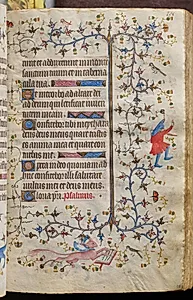 runt et adduxerunt in monte
sanctum tuum et in taberna
cula tua
Et introibo ad altare dei
ad deum qui letificat iuven
tutem meam
Confitebor tibi in cythara
deus deus meus quare tristis
es anima mea et quare con
turbas me
Spera in deo quoniam ad
huc confitebor illi salutare
vultus mei et deus meus
Gloria pri. Psalmus